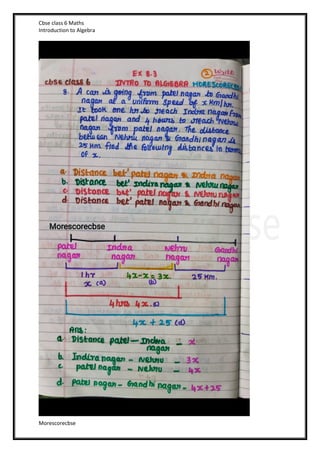 Cbse class 6 Maths
Introduction to Algebra
Ex 8.3
2
cbse class 6 INTRO TO ALGEBRA MORESCORECBSE
8. A car is going from patel nagar to Gandhi
nagar at a uniform speed of x km/hr.
It took one hr to reach Indira Nagar from
patel nagar and 4 hours to reach Nehru
nagar from patel nagar. The distance
between Nehru nagar & Gandhi nagar is
25 km. find the following distances in terms
of x.
a. Distance bet' patel nagar & Indira nagar
b. Distance bet' Indira nagar & Nehru nagar
c. Distance bet' patel nagar & Nehru nagar
d. Distance bet' patel nagar & Gandhi nagar
Morescorecbse
patel nagar Indra nagar Nehru nagar Gandhi nagar
1hr 4x-x=3x 25 km.
x (a) (b)
4hrs 4x.(c)
4x + 25 (d)
Ans:
a Distance patel - Indira nagar = x
b. Indira nagar - Nehru - 3x
c patel nagar - Nehru - 4x
d. patel nagar - Gandhi nagar - 4x+25
Morescorecbse